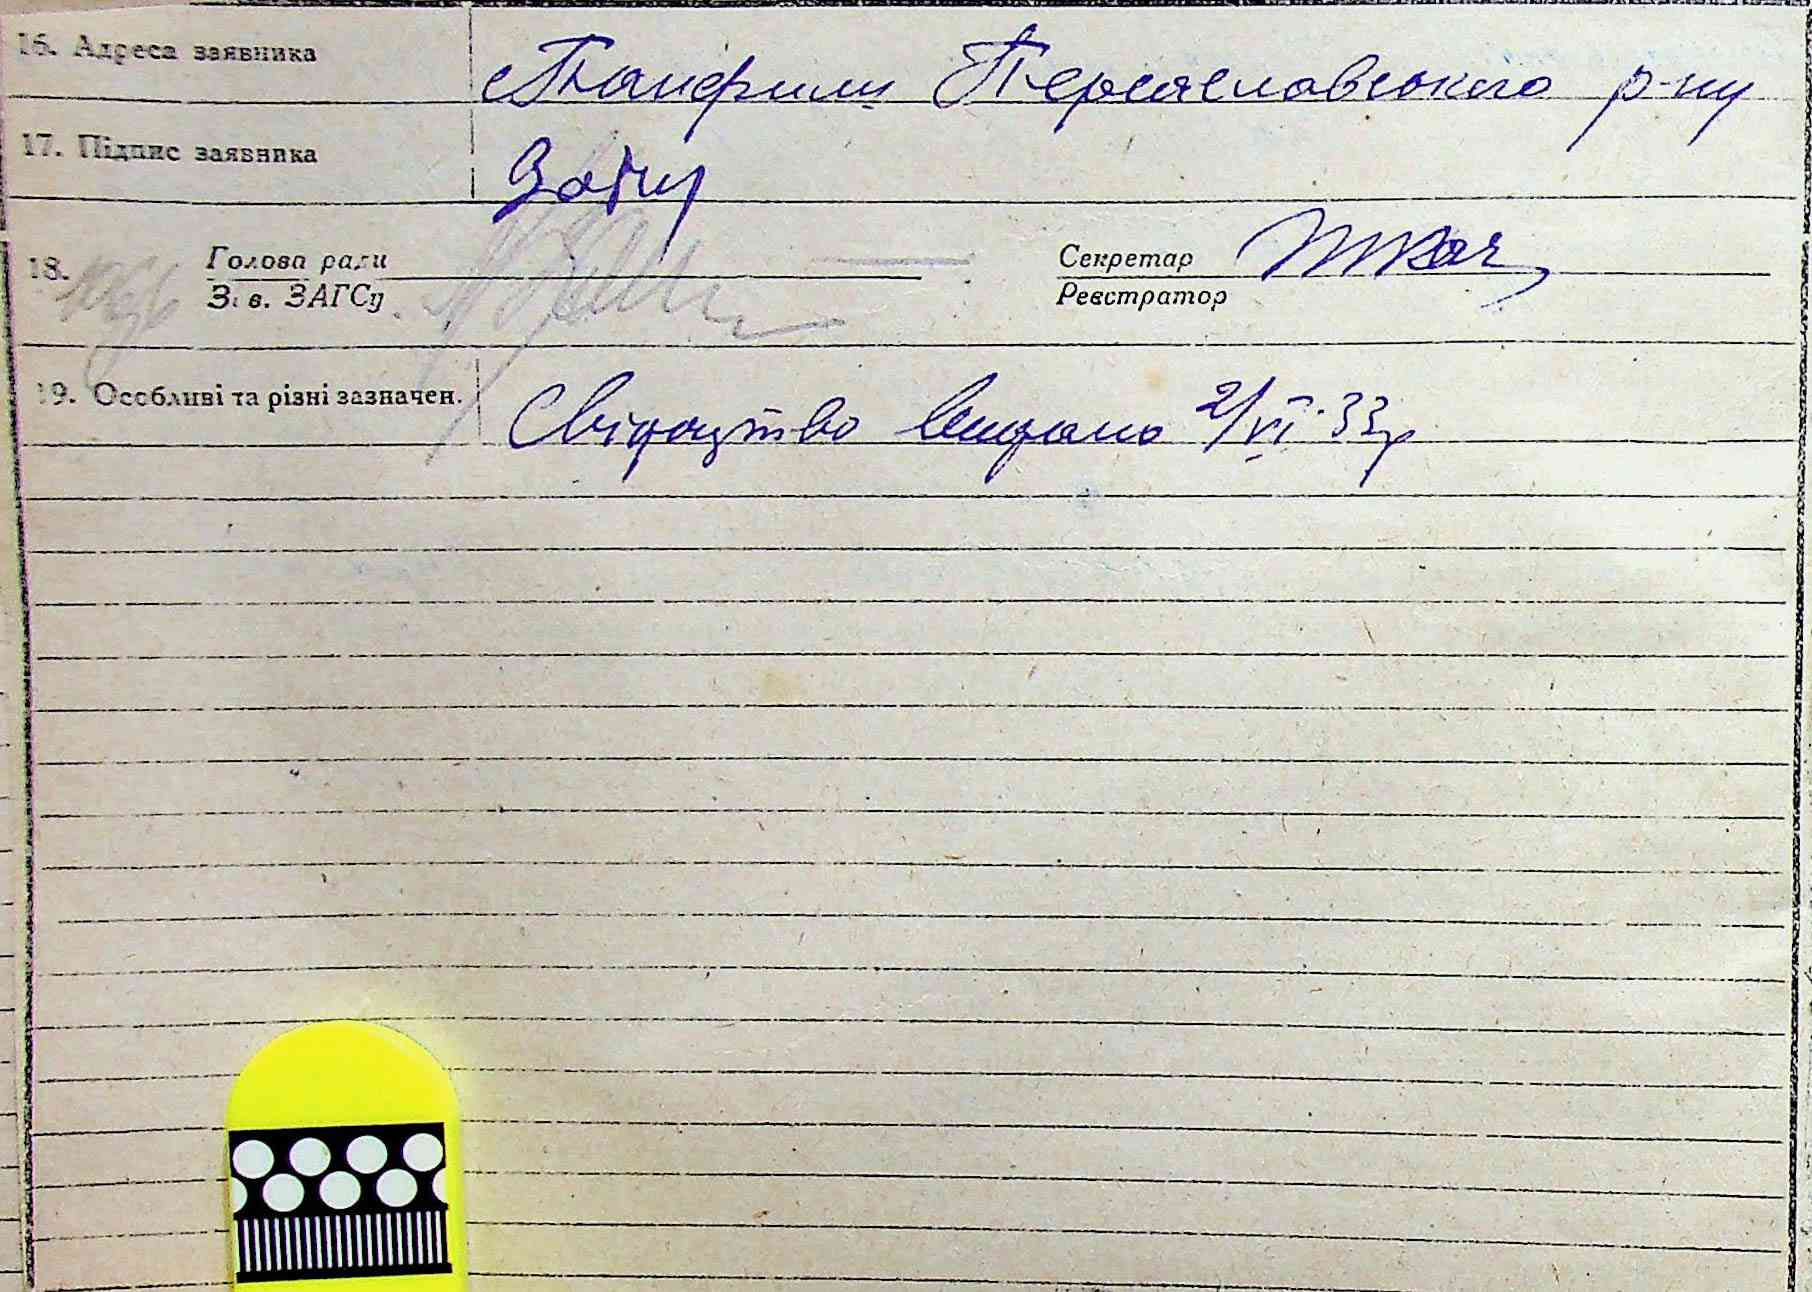 16. Адреса заявника с Панфили Переяславського р-ну
17. Підпис заявника
18. Голова ради Секретар Ткач
Зав. ЗАГСу Реєстратор
19. Особливі та різні зазначен. Свідоцтво видано 2/VI-33р